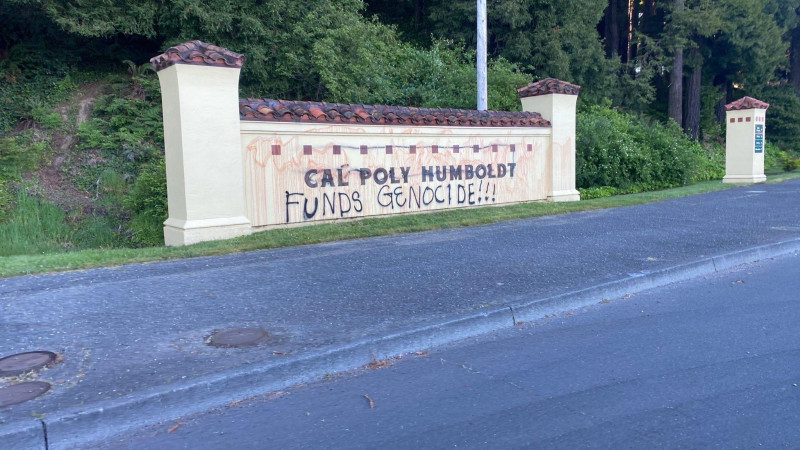 CAL POLY HUMBOLDT
FUNDS GENOCIDE!!!